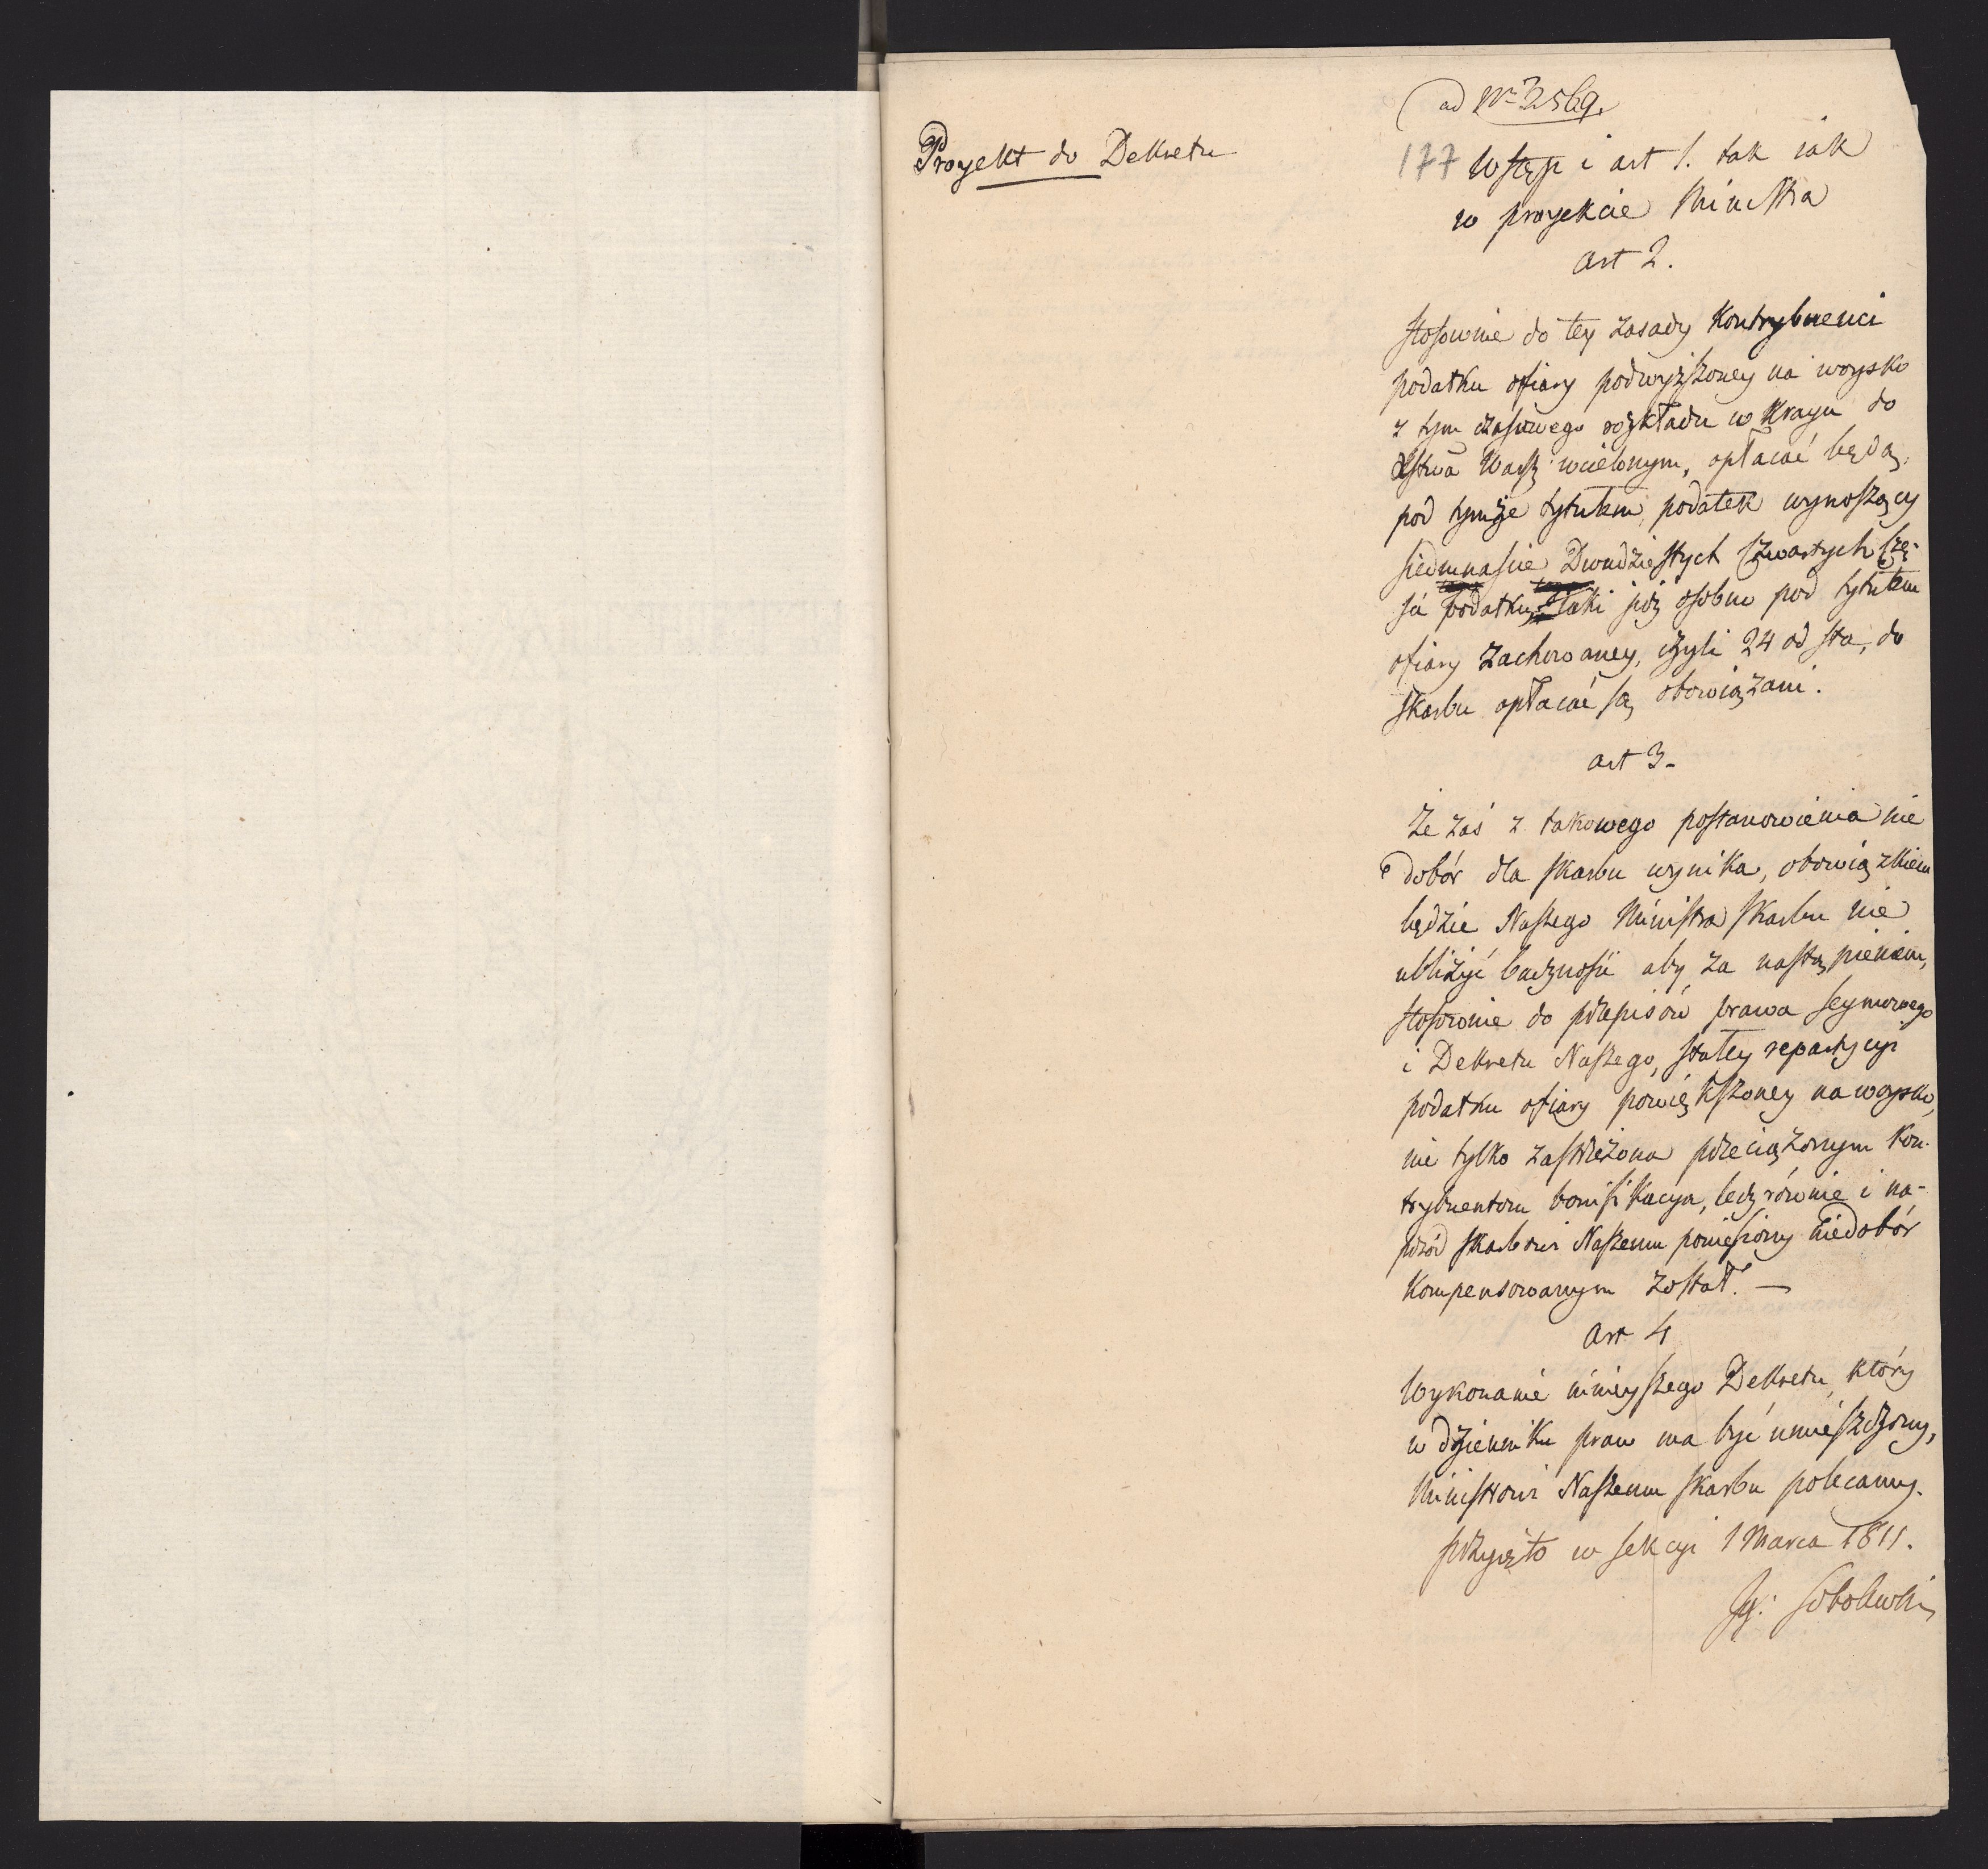 ad Nro 2569.
Proyekt do Dekretu
177
Wstęp i art 1. tak iak
w proyekcie Ministra
art 2.
stosownie do tey zasady Kontrybuenci
podatku ofiary podwyższoney na woysko
z tym czasowego rozkładu w Kraju do
Xstwa Warsz: wcielonym, opłacać będą,
pod tymże tytułem, podatek wynoszący
siedmnaście Dwudziestych Czwartych Czę-
ści podatku, iaki iuż osobno pod tytułem
ofiary zachowaney, czyli 24 od sta, do
skarbu opłacać są obowiązani.
art 3.
Że zaś z takowego postanowienia nie
dobór dla skarbu wynika, obowiązkiem
będzie Naszego Ministra Skarbu nie
ubliżyć baczności aby za nastąpieniem,
stosownie do przepisów prawa seymowego
i Dekretu Naszego, stałey repartycyi
podatku ofiary powiększoney na woysko,
nie tylko zastrzeżona przeciążonym Kon-
trybuentom bonifikacya, lecz równie i na-
przód skarbowi Naszemu poniesiony niedobór
Kompensowanym został. —
Art 4
Wykonanie ninieyszego Dekretu, który
w dzienniku praw ma być umieszczony,
Ministrowi Naszemu skarbu polecamy.
przyięto w sekcyi 1 Marca 1811.
Ig: Sobolewski